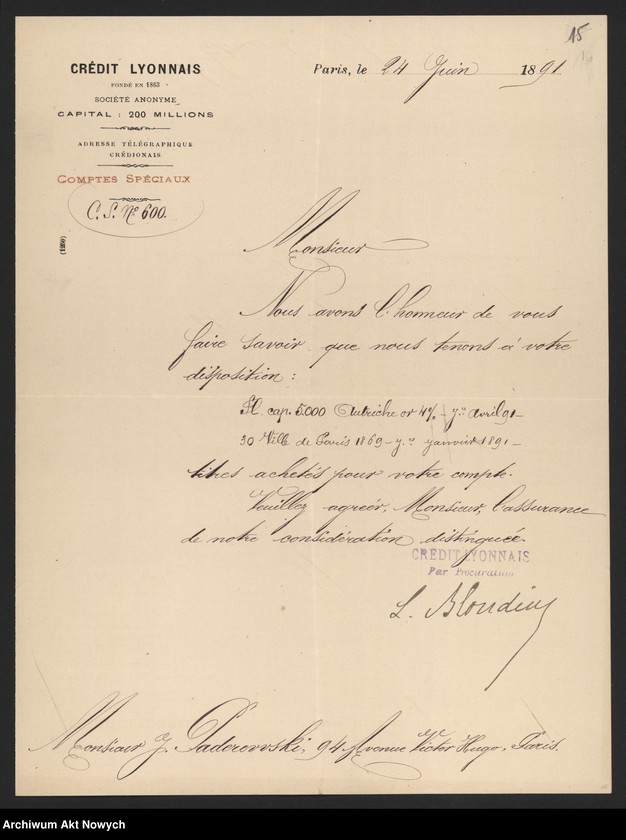 15
CRÉDIT LYONNAIS
FONDÉ EN 1863
SOCIÉTÉ ANONYME
CAPITAL : 200 MILLIONS
ADRESSE TÉLÉGRAPHIQUE
CRÉDIONAIS
COMPTES SPÉCIAUX
C. S. No 600.
(1250)
Paris, le 24 Juin 1891
Monsieur
Nous avons l'honneur de vous
faire savoir que nous tenons à votre
disposition :
Fl. cap. 5.000 Autriche or 4% - Jce avril 91 -
30 Ville de Paris 1869 - Jce janvier 1891 -
titres achetés pour votre compte.
Veuillez agréer, Monsieur, l'assurance
de notre considération distinguée.
CRÉDIT LYONNAIS
Par Procuration
L. Blondin
Monsieur J. Paderevski, 94 Avenue Victor Hugo, Paris.
Archiwum Akt Nowych